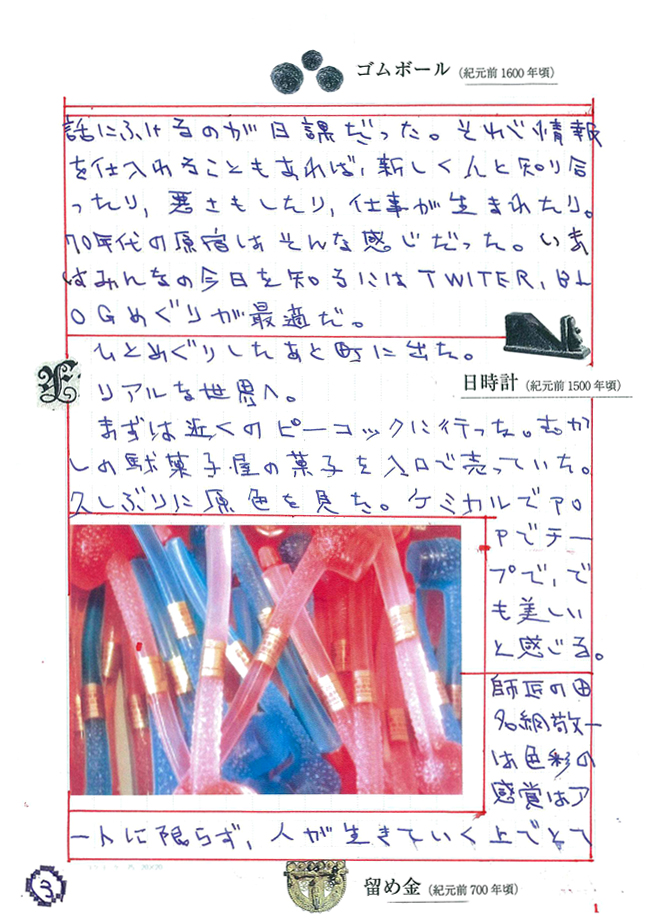 ゴムボール (紀元前1600年頃)
話にふけるのが日課だった。それで情報
を仕入れることもあれば、新しく人と知り合
ったり、悪さもしたり、仕事が生まれたり。
70年代の原宿はそんな感じだった。いま
はみんなの今日を知るにはTWITER、BL
OGめぐりが最適だ。
ひとめぐりしたあと町に出た。
日時計 (紀元前1500年頃)
リアルな世界へ。
まずは近くのピーコックに行った。むか
しの駄菓子屋の菓子を入口で売っていた。
久しぶりに原色を見た。ケミカルでPO
Pでチー
プで、で
も美しい
と感じる。
師匠の田
名網敬一
は色彩の
感覚はア
ートに限らず、人が生きていく上でとて
3
留め金 (紀元前700年頃)